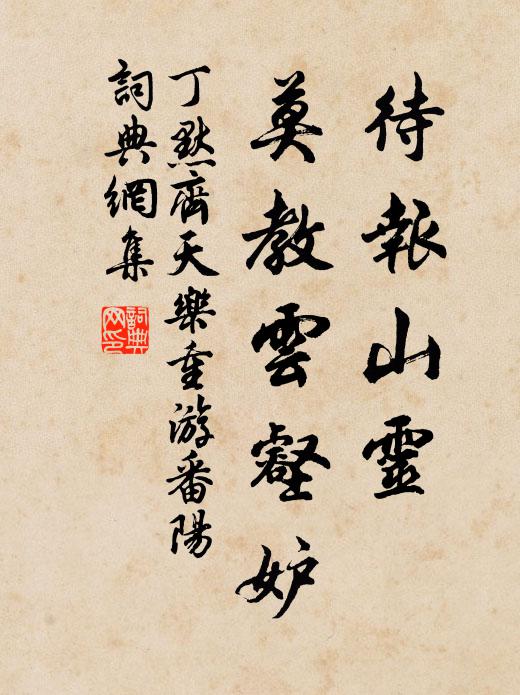 待報山靈
莫教雲壑妒
丁默齊天樂重游番陽
詞典網集
詞典網印